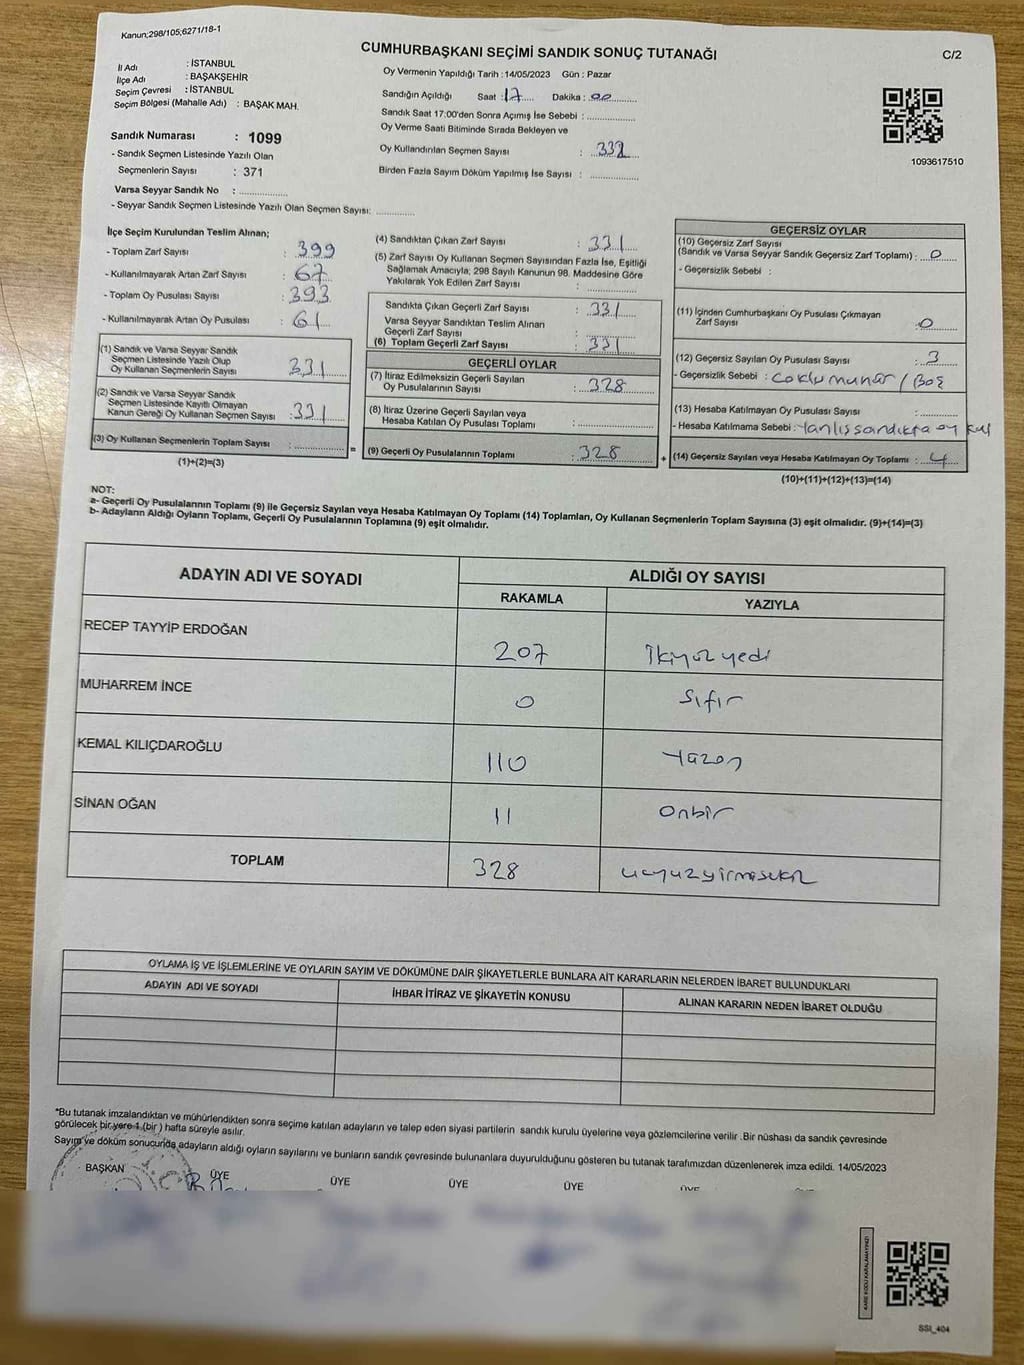 Kanun;298/105;6271/18-1
CUMHURBAŞKANI SEÇİMİ SANDIK SONUÇ TUTANAĞI
C/2
İl Adı : İSTANBUL
İlçe Adı : BAŞAKŞEHİR
Seçim Çevresi : İSTANBUL
Seçim Bölgesi (Mahalle Adı) : BAŞAK MAH.
Sandık Numarası : 1099
- Sandık Seçmen Listesinde Yazılı Olan
Seçmenlerin Sayısı : 371
Varsa Seyyar Sandık No : ..............
- Seyyar Sandık Seçmen Listesinde Yazılı Olan Seçmen Sayısı: ............
Oy Vermenin Yapıldığı Tarih : 14/05/2023 Gün : Pazar
Sandığın Açıldığı Saat : 17 Dakika : 00
Sandık Saat 17:00'den Sonra Açımış İse Sebebi : ..............
Oy Verme Saati Bitiminde Sırada Bekleyen ve
Oy Kullandırılan Seçmen Sayısı : 332
Birden Fazla Sayım Döküm Yapılmış İse Sayısı : ..............
1093617510
İlçe Seçim Kurulundan Teslim Alınan;
- Toplam Zarf Sayısı : 399
- Kullanılmayarak Artan Zarf Sayısı : 67
- Toplam Oy Pusulası Sayısı : 393
- Kullanılmayarak Artan Oy Pusulası : 61
(1) Sandık ve Varsa Seyyar Sandık
Seçmen Listesinde Yazılı Olup
Oy Kullanan Seçmenlerin Sayısı : 331
(2) Sandık ve Varsa Seyyar Sandık
Seçmen Listesinde Kayıtlı Olmayan
Kanun Gereği Oy Kullanan Seçmen Sayısı : 331
(3) Oy Kullanan Seçmenlerin Toplam Sayısı : ..............
(1)+(2)=(3)
=
(4) Sandıktan Çıkan Zarf Sayısı : 331
(5) Zarf Sayısı Oy Kullanan Seçmen Sayısından Fazla İse, Eşitliği
Sağlamak Amacıyla; 298 Sayılı Kanunun 98. Maddesine Göre
Yakılarak Yok Edilen Zarf Sayısı : ..............
Sandıkta Çıkan Geçerli Zarf Sayısı : 331
Varsa Seyyar Sandıktan Teslim Alınan
Geçerli Zarf Sayısı : ..............
(6) Toplam Geçerli Zarf Sayısı : 331
GEÇERLİ OYLAR
(7) İtiraz Edilmeksizin Geçerli Sayılan
Oy Pusulalarının Sayısı : 328
(8) İtiraz Üzerine Geçerli Sayılan veya
Hesaba Katılan Oy Pusulası Toplamı : ..............
(9) Geçerli Oy Pusulalarının Toplamı : 328
+
GEÇERSİZ OYLAR
(10) Geçersiz Zarf Sayısı
(Sandık ve Varsa Seyyar Sandık Geçersiz Zarf Toplamı) : 0
- Geçersizlik Sebebi :
(11) İçinden Cumhurbaşkanı Oy Pusulası Çıkmayan
Zarf Sayısı : 0
(12) Geçersiz Sayılan Oy Pusulası Sayısı : 3
- Geçersizlik Sebebi : Çoklu mühür / Boş
(13) Hesaba Katılmayan Oy Pusulası Sayısı : ..............
- Hesaba Katılmama Sebebi : Yanlış sandıkta oy kul
(14) Geçersiz Sayılan veya Hesaba Katılmayan Oy Toplamı : 4
(10)+(11)+(12)+(13)=(14)
NOT:
a- Geçerli Oy Pusulalarının Toplamı (9) ile Geçersiz Sayılan veya Hesaba Katılmayan Oy Toplamı (14) Toplamları, Oy Kullanan Seçmenlerin Toplam Sayısına (3) eşit olmalıdır. (9)+(14)=(3)
b- Adayların Aldığı Oyların Toplamı, Geçerli Oy Pusulalarının Toplamına (9) eşit olmalıdır.
ADAYIN ADI VE SOYADI
ALDIĞI OY SAYISI
RAKAMLA YAZIYLA
RECEP TAYYİP ERDOĞAN 207 ikiyüz yedi
MUHARREM İNCE 0 sıfır
KEMAL KILIÇDAROĞLU 110 Yüzon
SİNAN OĞAN 11 onbir
TOPLAM 328 üçyüzyirmisekiz
OYLAMA İŞ VE İŞLEMLERİNE VE OYLARIN SAYIM VE DÖKÜMÜNE DAİR ŞİKAYETLERLE BUNLARA AİT KARARLARIN NELERDEN İBARET BULUNDUKLARI
ADAYIN ADI VE SOYADI İHBAR İTİRAZ VE ŞİKAYETİN KONUSU ALINAN KARARIN NEDEN İBARET OLDUĞU
*Bu tutanak imzalandıktan ve mühürlendikten sonra seçime katılan adayların ve talep eden siyasi partilerin sandık kurulu üyelerine veya gözlemcilerine verilir .Bir nüshası da sandık çevresinde
görülecek bir yere 1 (bir ) hafta süreyle asılır.
Sayım ve döküm sonucunda adayların aldığı oyların sayılarını ve bunların sandık çevresinde bulunanlara duyurulduğunu gösteren bu tutanak tarafımızdan düzenlenerek imza edildi. 14/05/2023
BAŞKAN ÜYE ÜYE ÜYE ÜYE ÜYE
KARE KODU KARALAMAYINIZ!
SSI_404